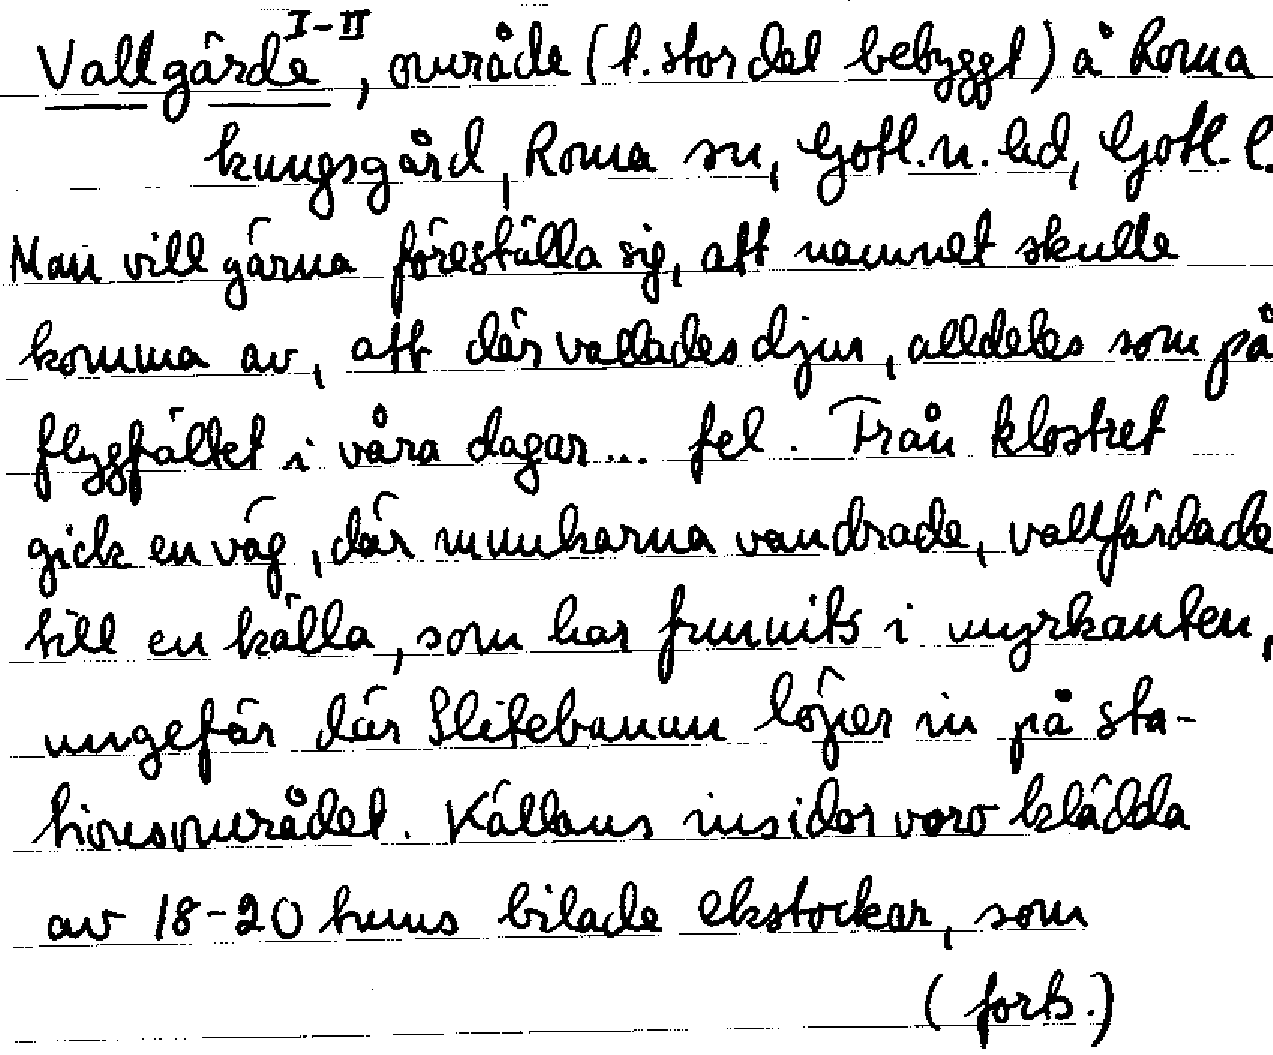 Vallgärde I-II, område (t. stor del bebyggt) å Roma
kungsgård, Roma sn, Gotl. n. hd, Gotl. l.
Man vill gärna föreställa sig, att namnet skulle
komma av, att där vallades djur, alldeles som på
flygfältet i våra dagar... fel. Från klostret
gick en väg, där munkarna vandrade, vallfärdade
till en källa, som har funnits i myrkanten,
ungefär där Slitebanan löper in på sta-
tionsområdet. Källans insidor voro klädda
av 18-20 tums bilade ekstockar, som
(forts.)